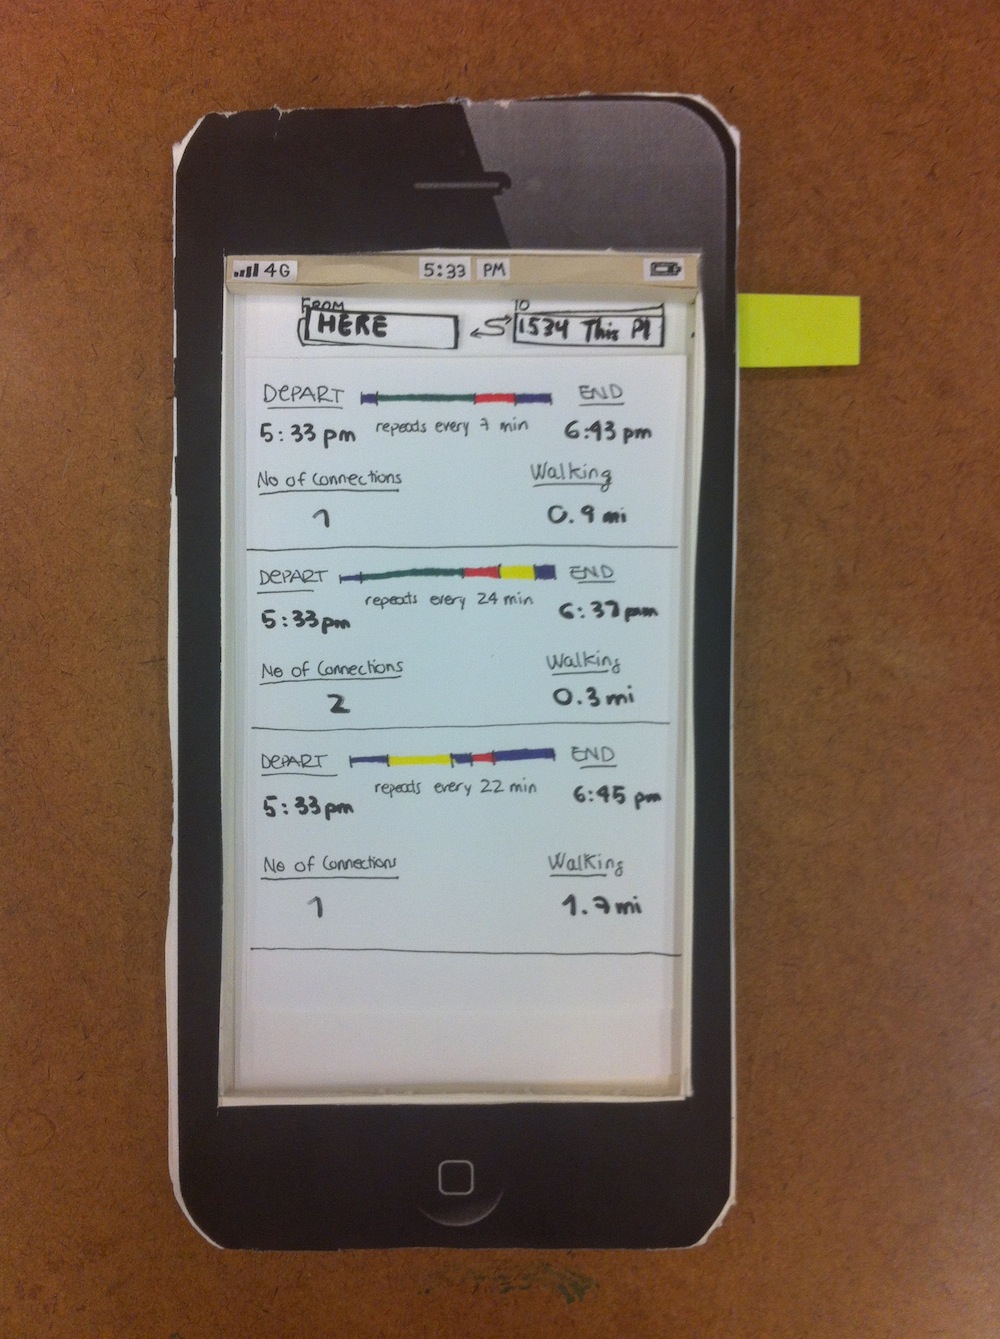 4G 5:33 PM
FROM TO
HERE 1534 This Pl
DEPART END
5:33 pm repeats every 7 min 6:43 pm
No of Connections Walking
1 0.9 mi
DEPART END
5:33 pm repeats every 24 min 6:37 pm
No of Connections Walking
2 0.3 mi
DEPART END
5:33 pm repeats every 22 min 6:45 pm
No of Connections Walking
1 1.7 mi